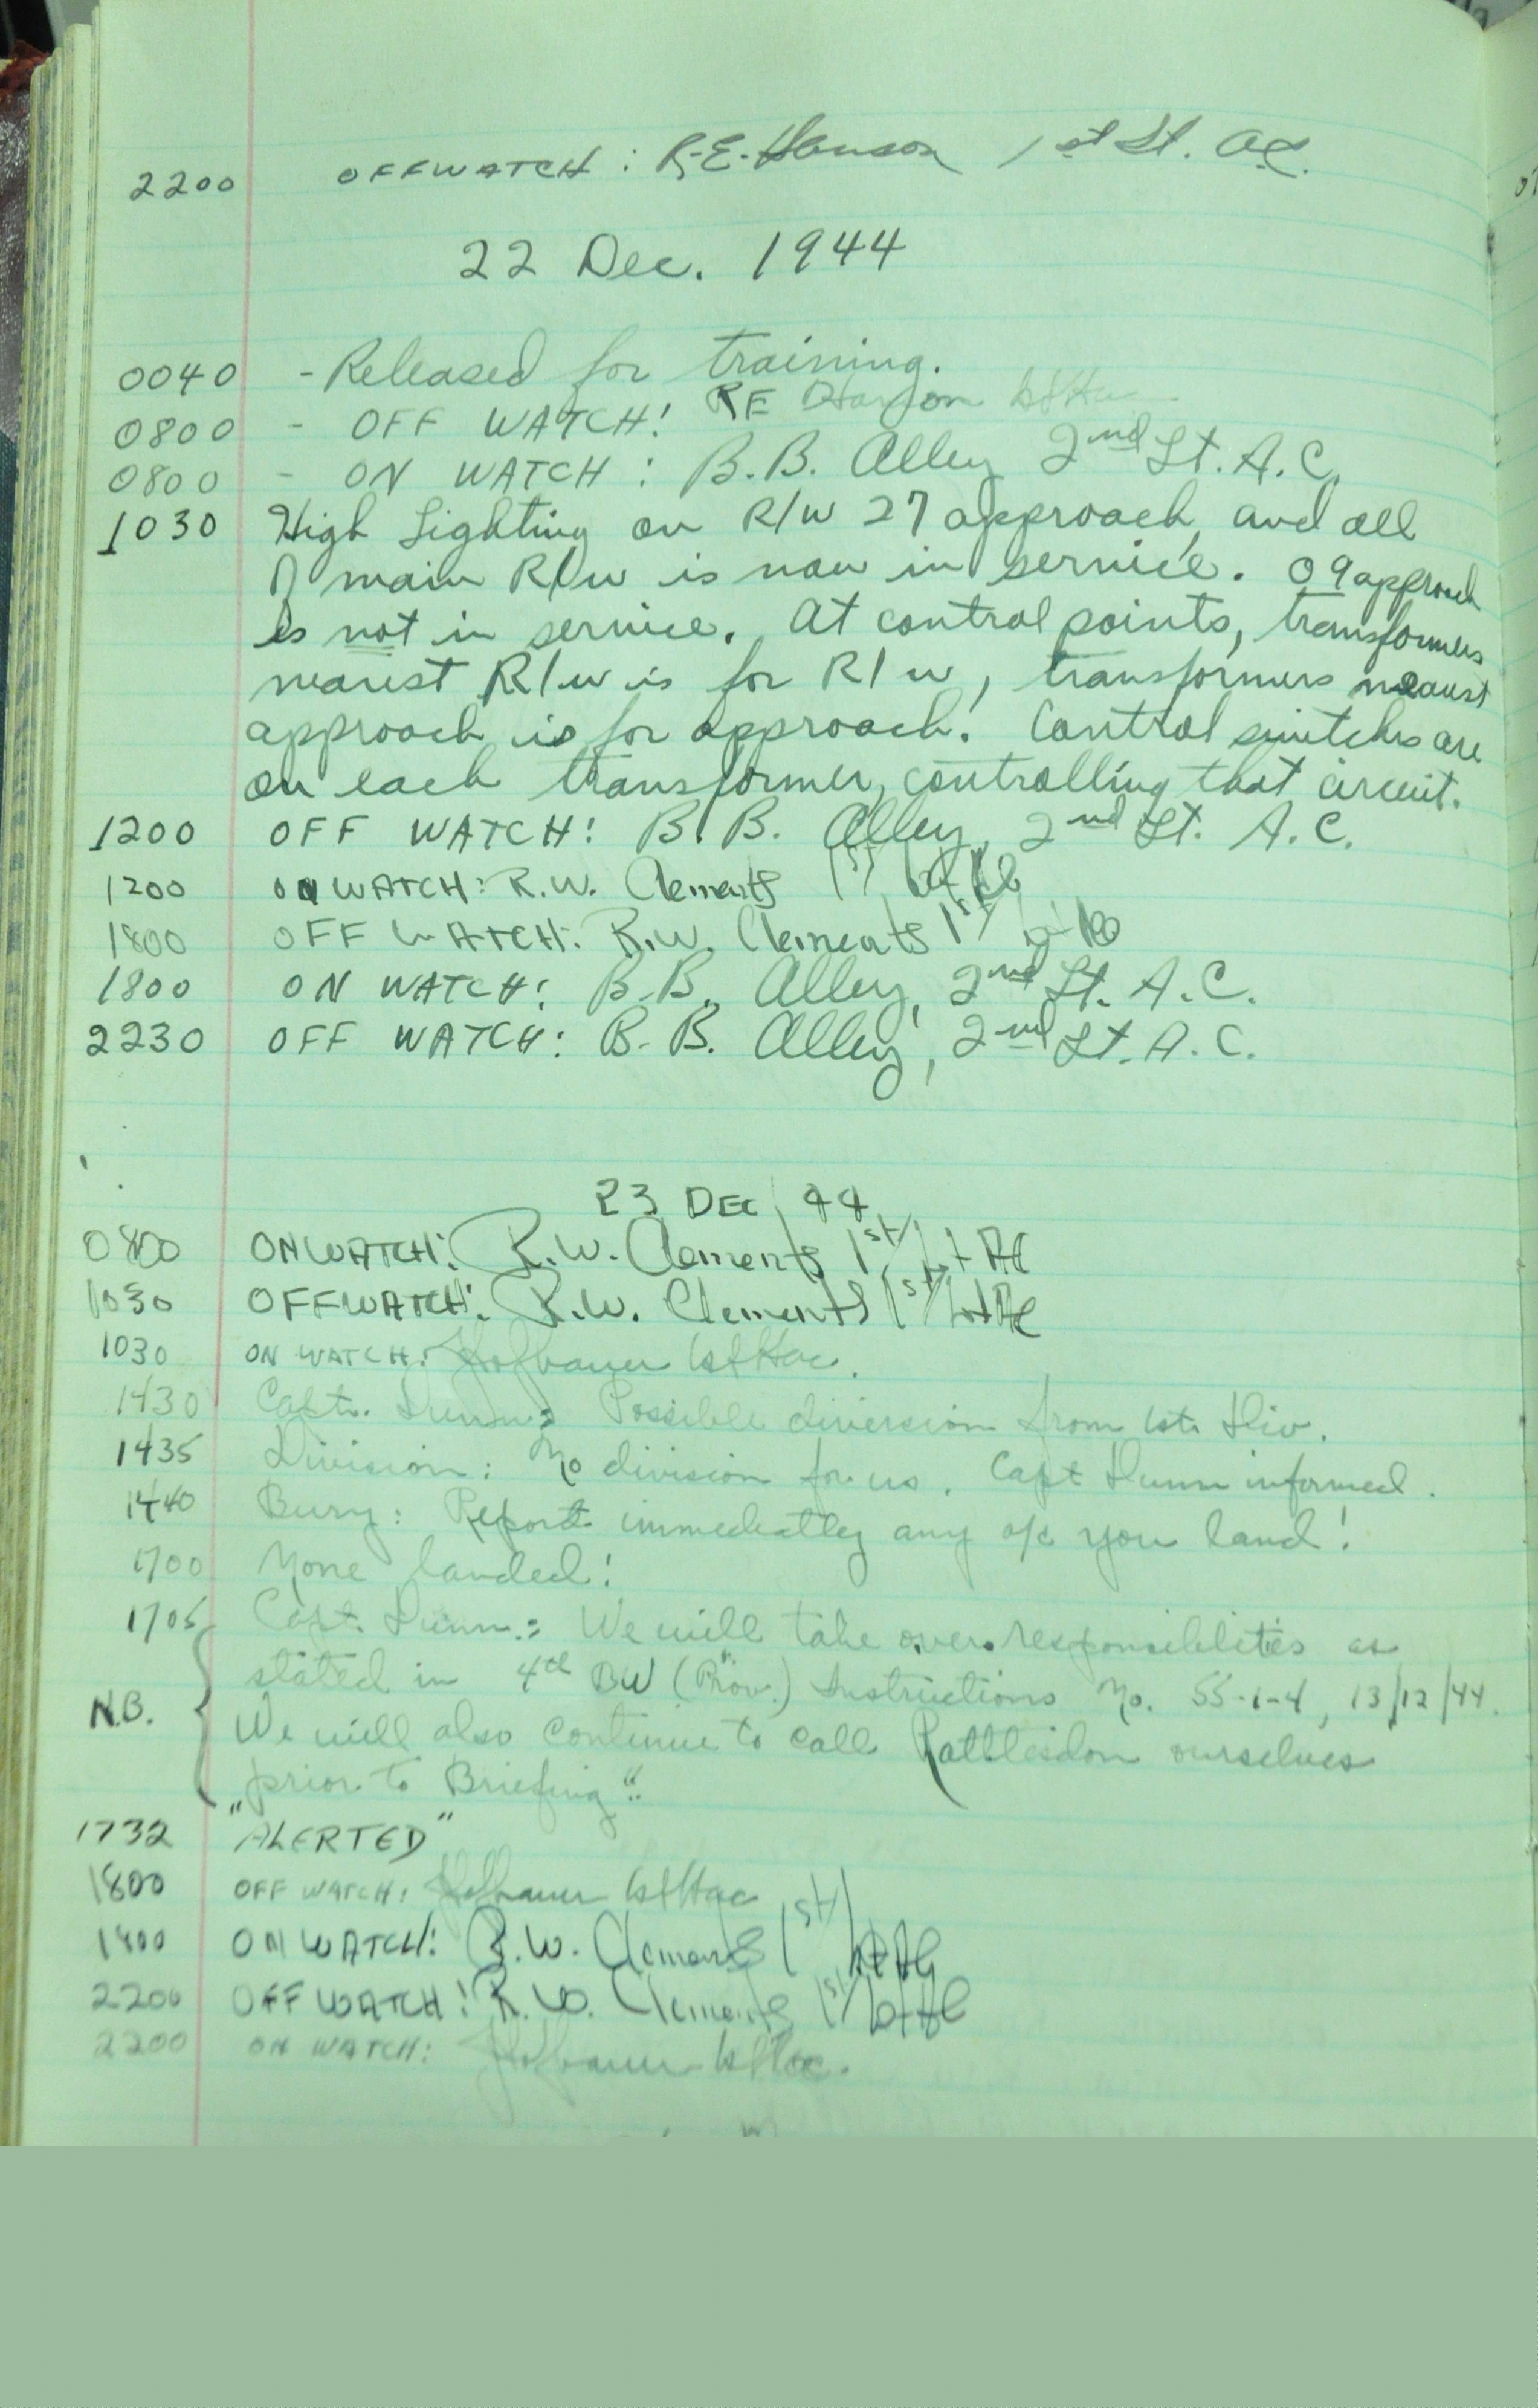 2200 OFFWATCH: R.E. Hanson 1st Lt. AC.
22 Dec. 1944
0040 - Released for training.
0800 - OFF WATCH! RE Hanson 1st Lt ac
0800 - ON WATCH: B.B. Alley 2nd Lt. A.C.
1030 High Lighting on R/W 27 approach, and all
of main R/W is now in service. 09 approach
is not in service. At control points, transformers
nearest R/W is for R/W, transformers nearest
approach is for approach. Control switches are
on each transformer, controlling that circuit.
1200 OFF WATCH: B.B. Alley, 2nd Lt. A.C.
1200 ON WATCH: R.W. Clements 1st Lt AC
1800 OFF WATCH: R.W. Clements 1st Lt AC
1800 ON WATCH: B.B. Alley, 2nd Lt. A.C.
2230 OFF WATCH: B.B. Alley, 2nd Lt. A.C.
23 DEC 44
0800 ON WATCH: R.W. Clements 1st Lt AC
1030 OFF WATCH: R.W. Clements 1st Lt AC
1030 ON WATCH: Hofbauer 1st Lt ac.
1430 Capt. Dunn: Possible diversion from 1st. Div.
1435 Division: No division for us. Capt Dunn informed.
1440 Bury: Report immediately any a/c you land!
1700 None landed!
1705 Capt. Dunn: We will take over responsibilities as
stated in 4th BW (Prov.) Instructions No. 55-1-4, 13/12/44.
N.B. We will also continue to call Rattlesdon ourselves
"prior to Briefing".
1732 "ALERTED"
1800 OFF WATCH: Hofbauer 1st Lt ac
1800 ON WATCH: R.W. Clements 1st Lt AC
2200 OFF WATCH: R.W. Clements 1st Lt AC
2200 ON WATCH: Hofbauer 1st Lt ac.